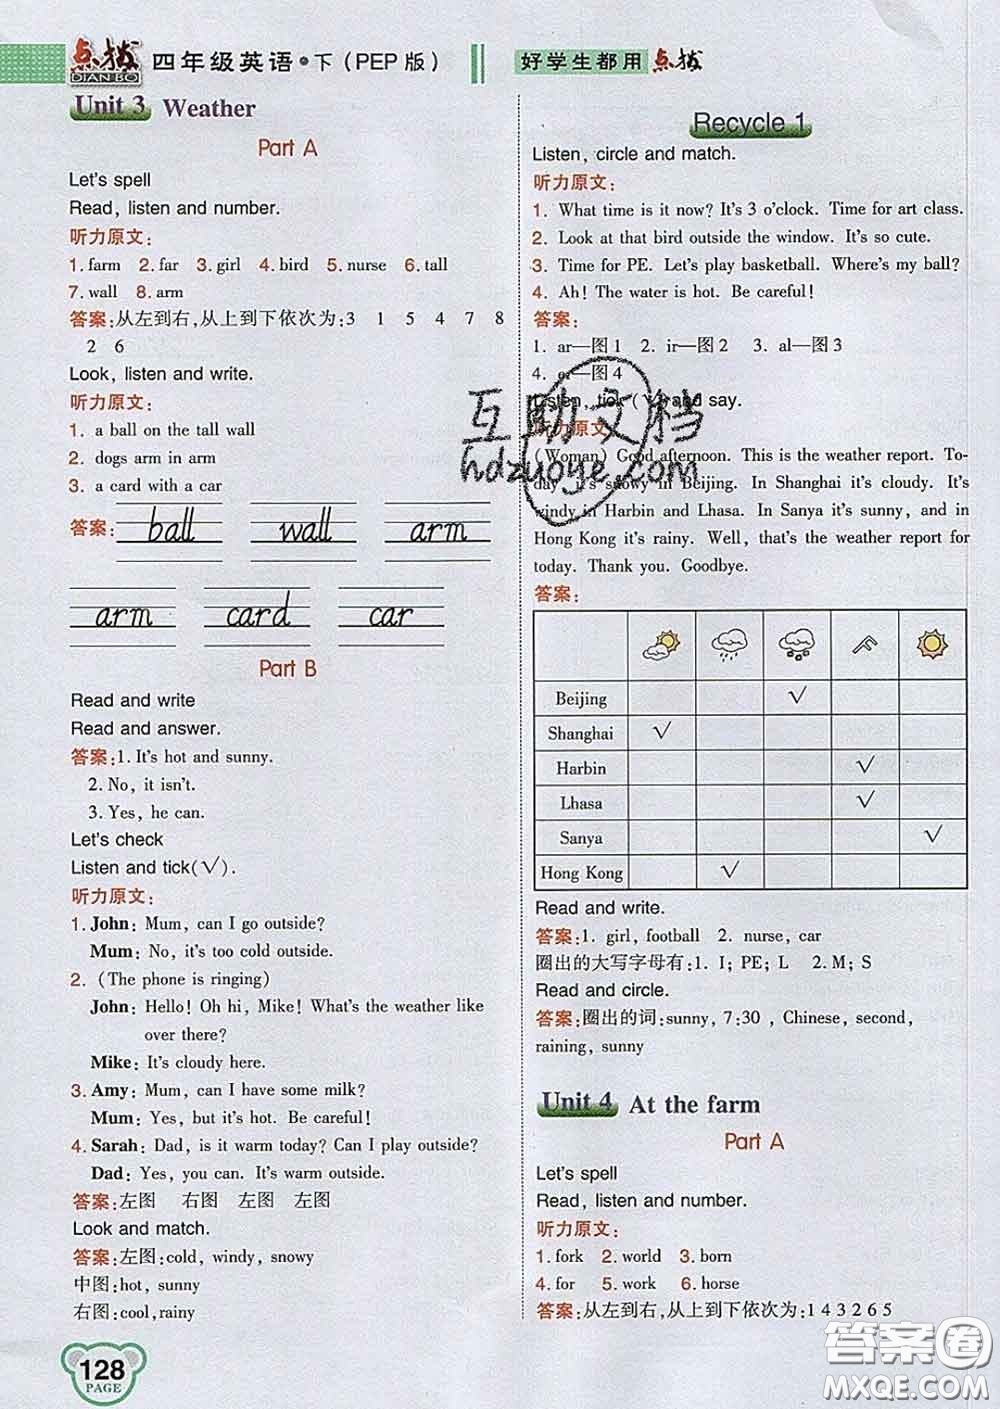 点拨 DIAN BO 四年级英语·下(PEP版)
好学生都用点拨
Unit 3 Weather
Part A
Let's spell
Read, listen and number.
听力原文:
1. farm 2. far 3. girl 4. bird 5. nurse 6. tall
7. wall 8. arm
答案:从左到右,从上到下依次为:3 1 5 4 7 8
2 6
Look, listen and write.
听力原文:
1. a ball on the tall wall
2. dogs arm in arm
3. a card with a car
答案: ball wall arm
arm card car
Part B
Read and write
Read and answer.
答案:1. It's hot and sunny.
2. No, it isn't.
3. Yes, he can.
Let's check
Listen and tick(√).
听力原文:
1. John: Mum, can I go outside?
Mum: No, it's too cold outside.
2. (The phone is ringing)
John: Hello! Oh hi, Mike! What's the weather like
over there?
Mike: It's cloudy here.
3. Amy: Mum, can I have some milk?
Mum: Yes, but it's hot. Be careful!
4. Sarah: Dad, is it warm today? Can I play outside?
Dad: Yes, you can. It's warm outside.
答案:左图 右图 左图 左图
Look and match.
答案:左图:cold, windy, snowy
中图:hot, sunny
右图:cool,rainy
128
PAGE
Recycle 1
Listen, circle and match.
听力原文:
1. What time is it now? It's 3 o'clock. Time for art class.
2. Look at that bird outside the window. It's so cute.
3. Time for PE. Let's play basketball. Where's my ball?
4. Ah! The water is hot. Be careful!
答案:
1. ar—图1 2. ir—图2 3. al—图3
4. er—图4
Listen, tick (√) and say.
听力原文:
(Woman) Good afternoon. This is the weather report. To-
day it's snowy in Beijing. In Shanghai it's cloudy. It's
windy in Harbin and Lhasa. In Sanya it's sunny, and in
Hong Kong it's rainy. Well, that's the weather report for
today. Thank you. Goodbye.
答案:
Beijing √
Shanghai √
Harbin √
Lhasa √
Sanya √
Hong Kong √
Read and write.
答案:1. girl, football 2. nurse, car
圈出的大写字母有:1. I; PE; L 2. M; S
Read and circle.
答案:圈出的词:sunny, 7:30 , Chinese, second,
raining, sunny
Unit 4 At the farm
Part A
Let's spell
Read, listen and number.
听力原文:
1. fork 2. world 3. born
4. for 5. work 6. horse
答案:从左到右,从上到下依次为:1 4 3 2 6 5
互助文档
hdzuoye.com
答案圈
MXQE.COM